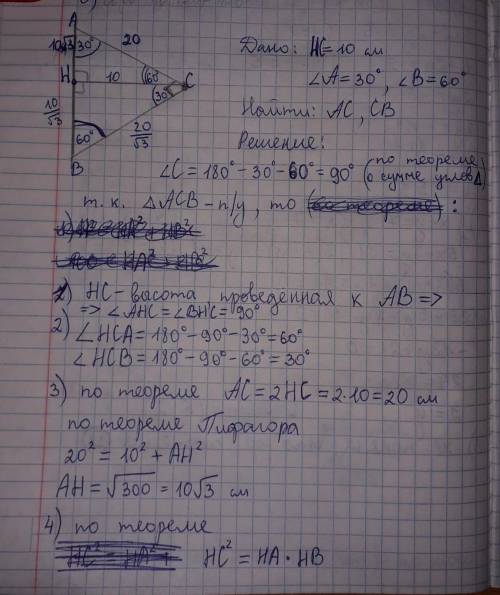 A
20
10√3
30°
H
10
60°
C
30°
10/√3
60°
20/√3
B
Дано: HC=10 см
∠A=30°, ∠B=60°
Найти: AC, CB
Решение:
∠C=180°-30°-60°=90° (по теореме о сумме углов Δ)
т.к. ΔACB-п/у, то (по теореме) :
1) HC-высота проведённая к AB =>
=> ∠AHC=∠BHC=90°
2) ∠HCA=180°-90°-30°=60°
∠HCB=180°-90°-60°=30°
3) по теореме AC=2HC=2·10=20 см
по теореме Пифагора
20²=10²+AH²
AH=√300=10√3 см
4) по теореме
HC²=HA²+ HC²=HA·HB